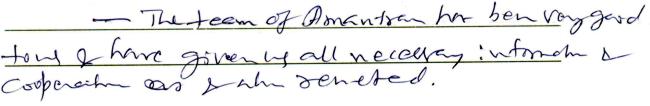 — The team of Amantran has been very good
to us & have given us all necessary information &
Cooperation as & when